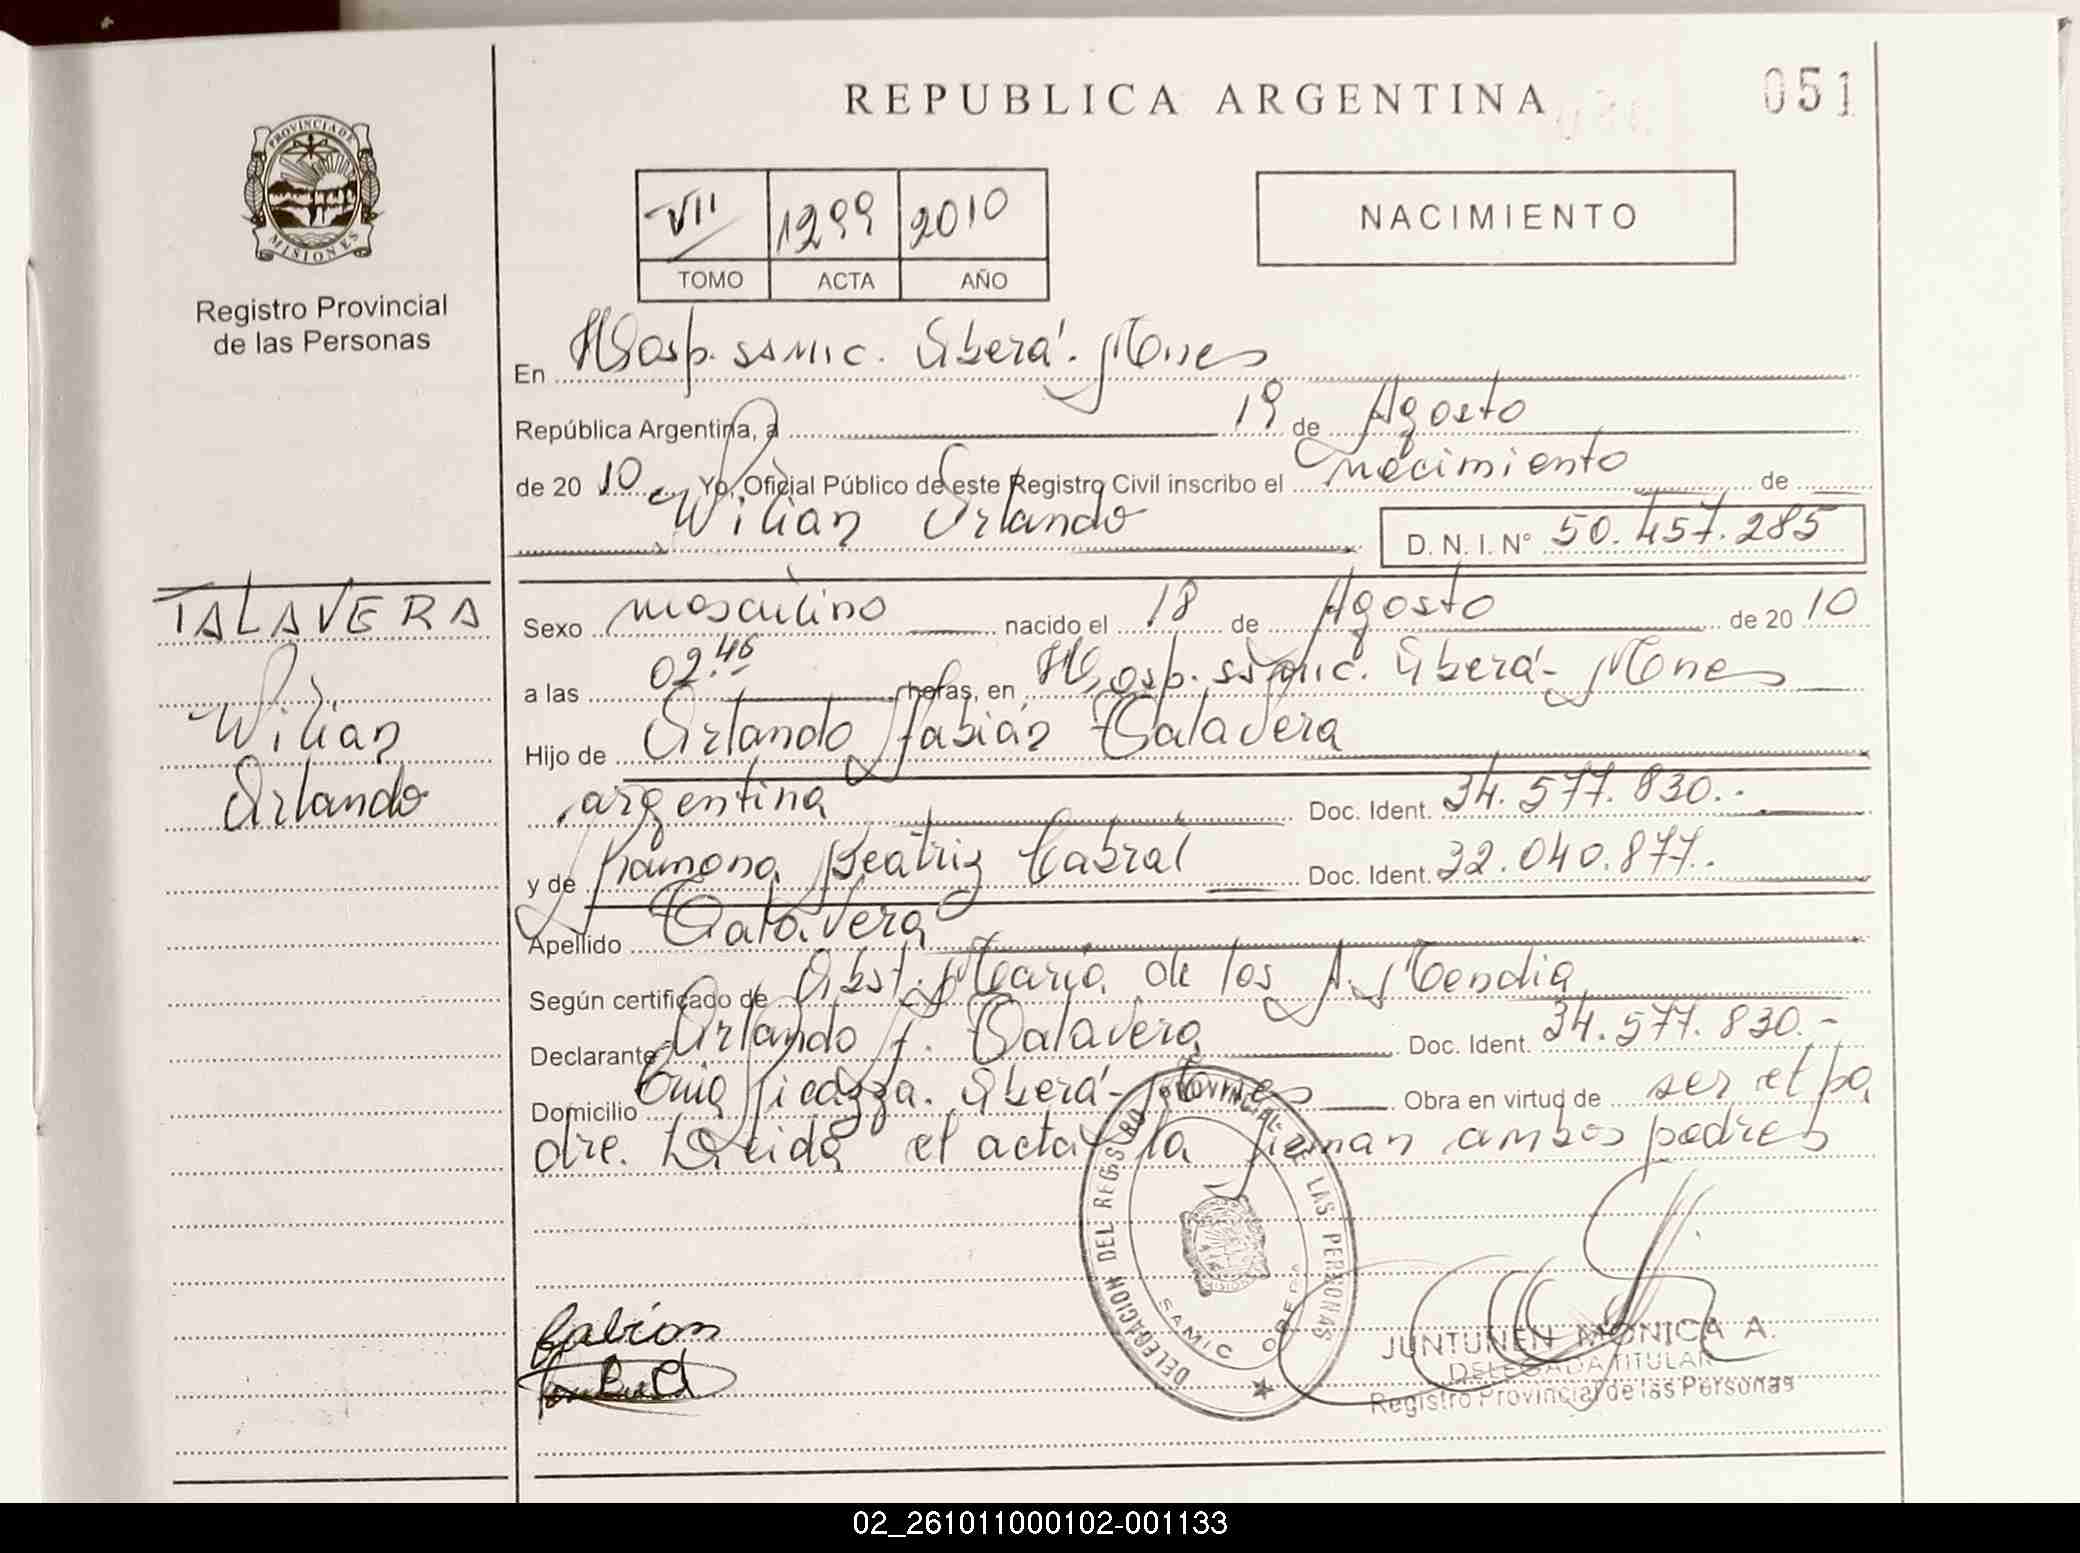 REPUBLICA ARGENTINA
051
PROVINCIA DE
MISIONES
Registro Provincial
de las Personas
VII 1299 2010
TOMO ACTA AÑO
NACIMIENTO
En Hosp. SAMIC. Oberá. Mnes
República Argentina, a 19 de Agosto
de 20 10 Yo, Oficial Público de este Registro Civil inscribo el nacimiento de
Wilian Orlando D. N. I. N° 50.457.285
TALAVERA
Wilian
Orlando
Sexo masculino nacido el 18 de Agosto de 20 10
a las 02.46 horas, en Hosp. SAMIC. Oberá - Mnes
Hijo de Orlando Fabián Talavera
argentina Doc. Ident. 34.577.830.-
y de Ramona Beatriz Cabral Doc. Ident. 32.040.877.
Apellido Talavera
Según certificado de Obst. María de los A. Mendia
Declarante Orlando F. Talavera Doc. Ident. 34.577.830.-
Domicilio Picazza. Oberá - Mnes Obra en virtud de ser el pa
dre. Leida el acta la firman ambos padres
Fabian
DELEGACION DEL REGISTRO PROVINCIAL DE LAS PERSONAS
SAMIC OBERA
JUNTUNEN MONICA A.
DELEGADA TITULAR
Registro Provincial de las Personas
02_261011000102-001133